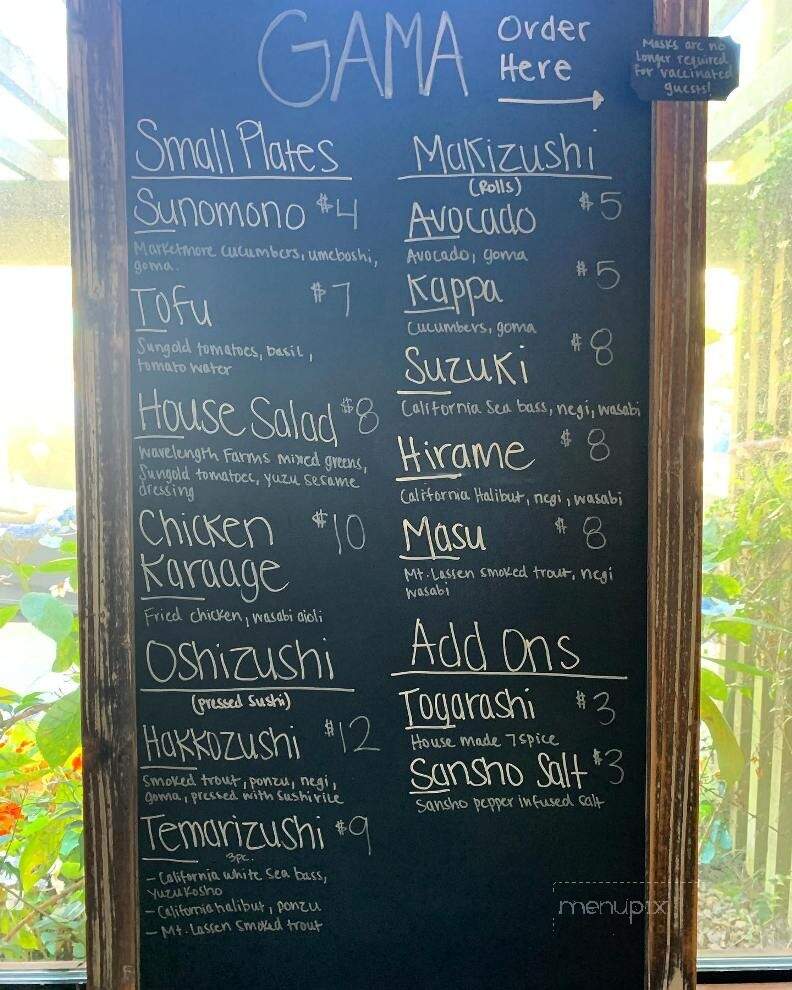 GAMA
Order
Here
Masks are no
longer required
for vaccinated
guests!
Small Plates
Sunomono $4
Marketmore cucumbers, umeboshi,
goma.
Tofu $7
Sungold tomatoes, basil,
tomato water
House Salad $8
Wavelength Farms mixed greens,
Sungold tomatoes, yuzu sesame
dressing
Chicken $10
Karaage
Fried chicken, wasabi aioli
Oshizushi
(pressed sushi)
Hakkozushi $12
Smoked trout, ponzu, negi,
goma, pressed with sushi rice
Temarizushi $9
3pc.
- California white Sea bass,
yuzukosho
- California halibut, ponzu
- Mt. Lassen smoked trout
Makizushi
(Rolls)
Avocado $5
Avocado, goma
Kappa $5
Cucumbers, goma
Suzuki $8
California Sea bass, negi, wasabi
Hirame $8
California Halibut, negi, wasabi
Masu $8
Mt. Lassen smoked trout, negi
wasabi
Add Ons
Togarashi $3
House made 7 spice
Sansho Salt $3
Sansho pepper infused salt
menupix